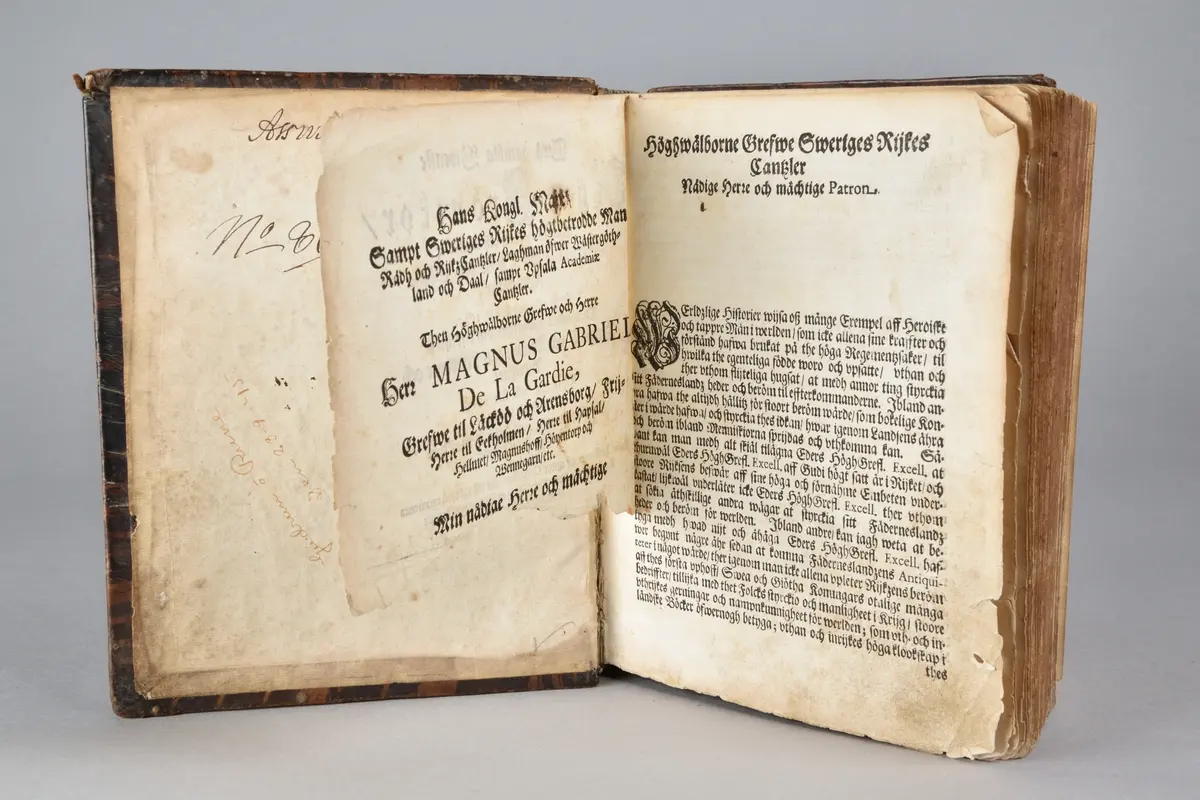 No
Gudrun o Penne
Hans Kongl. Maij:tz
Sampt Sweriges Rijkes högtbetrodde Man
Rådh och RijkzCantzler/ Laghman öfwer Wästergöth-
land och Daal/ sampt Vpsala Academiæ
Cantzler.
Then Höghwälborne Grefwe och Herre
Herr MAGNUS GABRIEL
De La Gardie,
Grefwe til Läcköö och Arensborg/ Frij-
Herre til Eekholmen/ Herre til Hapsal/
Helmet/ Magnushoff/ Höyentorp och
Wennegarn/ etc.
Min nådige Herre och mächtige
Höghwälborne Grefwe Sweriges Rijkes
Cantzler
Nådige Herre och mächtige Patron.
WErldzlige Historier wijsa oß månge Exempel aff Heroiske
och tappre Män i werlden/ som icke allena sine kraffter och
förstånd hafwa brukat på the höga Regementzsaker/ til
hwilka the egenteliga födde woro och vpsatte/ vthan och
ther vthom flijteliga hugsat/ at medh annor ting styrckia
sitt Fäderneslandz heder och beröm til efterkommanderne. Ibland an-
ra hafwa the altijdh hållitz för stoort beröm wärde/ som bokelige Kon-
ster i wärde hafwa/ och styrckia thes idkan/ hwar igenom Landsens ähra
och beröm ibland Menniskiorna sprijdas och vthkomma kan. Så-
dant kan man medh alt skiäl tilägna Eders HöghGrefl. Excell. at
ehuruwäl Eders HöghGrefl. Excell. aff Gudi högt satt är i Rijket/ och
stoore Rijksens beswär aff sine höga och förnähme Embeten vnder-
kastat/ lijkwäl vnderlåter icke Eders HöghGrefl. Excell. ther vthom
at sökia åthskillige andra wägar at styrckia sitt Fäderneslandz
heder och beröm för werlden. Ibland andre/ kan iagh weta at be-
tyga medh hwad nijt och åhåga Eders HöghGrefl. Excell. haf-
wer begynt någre åhr sedan at komma Fäderneslandzens Antiqui-
teter i något wärde/ ther igenom man icke allena vpleter Rijkzens beröm
aff thes första vphoff/ Swea och Giötha Konungars otalige många
bedriffter/ tillijka med thet Folcks styrckio och manligheet i Krijg/ stoore
vthrijkes gerningar och namnkunnigheet för werlden; som vth- och in-
ländske Böcker öfwernogh betyga; vthan och inrijkes höga klookskap i
thes